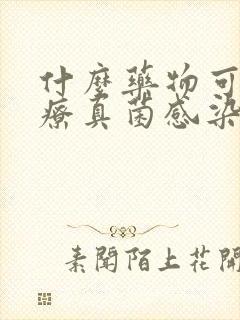 什麼藥物可
療真菌感染
素聞陌上花開